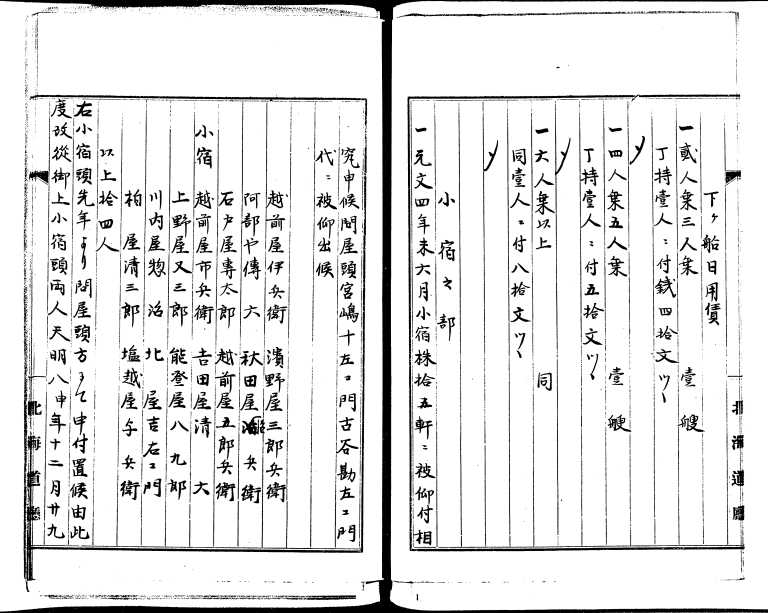 下ヶ船日用債
一貳人乗三人乗　壹艘
丁持壹人ニ付銭四拾文ツヽ
〆
一四人乗五人乗　壹艘
丁持壹人ニ付五拾文ツヽ
〆
一六人乗以上　同
同壹人ニ付八拾文ツヽ
〆
小宿之部
一元文四年未六月小宿株拾五軒ニ被仰付相
究申候問屋頭宮嶋十左エ門古谷勘左エ門
代ニ被仰出候
越前屋伊兵衛　濱野屋三郎兵衛
阿部屋傳六　秋田屋 兵衛
石戸屋專太郎　越前屋五郎兵衛
小宿　越前屋市兵衛　吉田屋清六
上野屋又三郎　能登屋八九郎
川内屋惣治　北屋吉右エ門
柏屋清三郎　塩越屋与兵衛
以上拾四人
右小宿頭先年より問屋頭方ニて申付置候由此
度改従御上小宿頭両人天明八申年十二月廿九
北海道廳
北海道廳